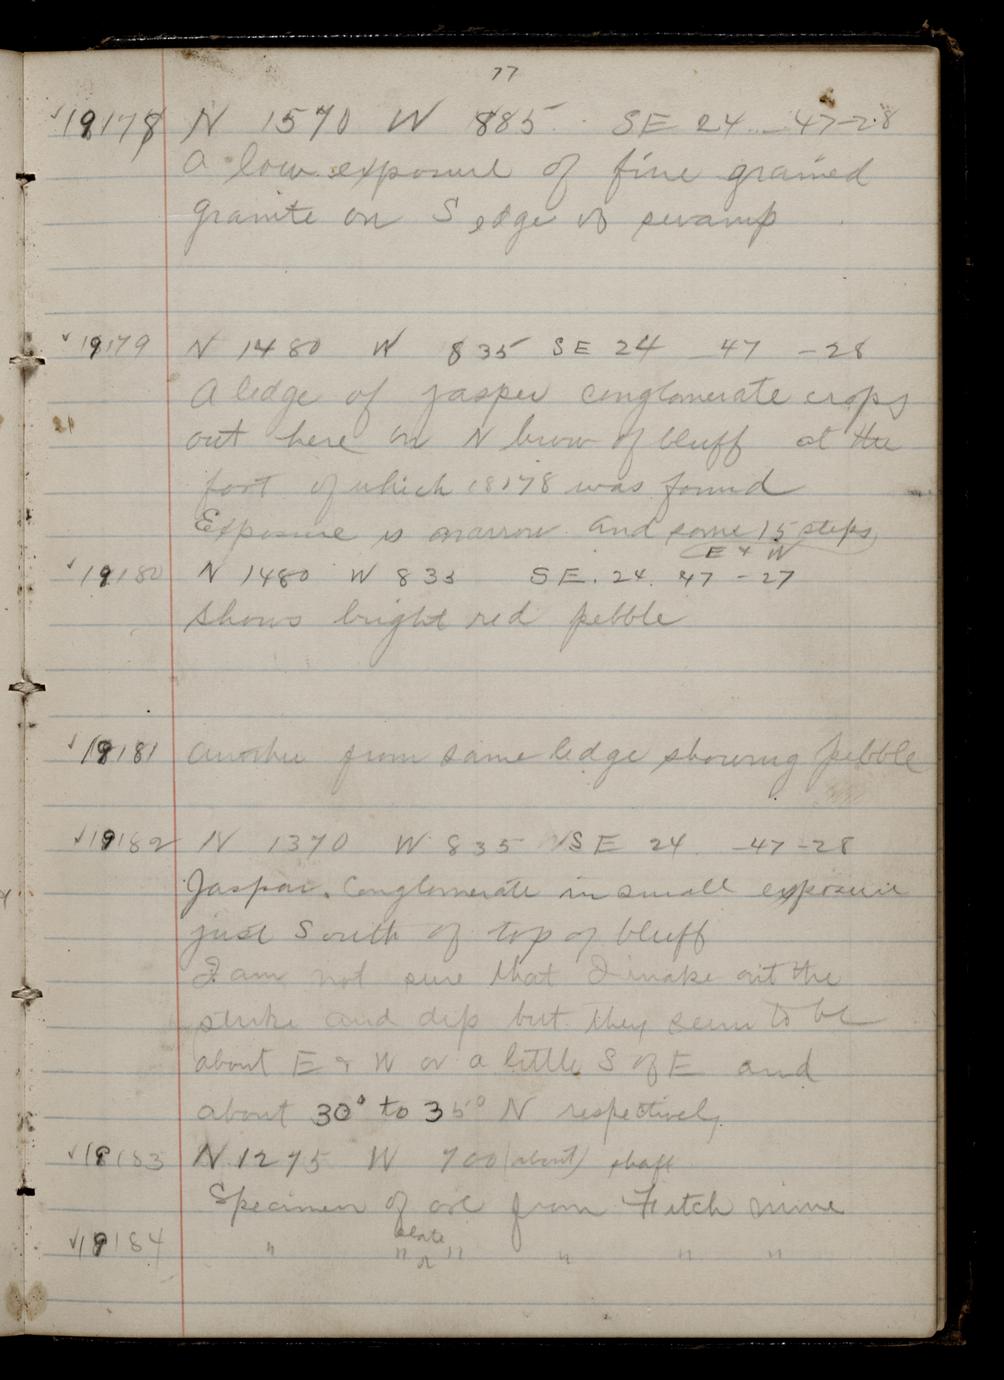 77
✓19178 N 1570 W 885 SE 24 - 47-28
A low exposure of fine grained
granite on S edge of swamp
✓19179 N 1480 W 835 SE 24 47 - 28
A ledge of jasper conglomerate crops
out here on N brow of bluff at the
foot of which 18178 was found
Exposure is narrow and some 15 steps
E & W
✓19180 N 1480 W 835 SE. 24. 47 - 27
shows bright red pebble
✓19181 another from same ledge showing pebble
✓19182 N 1370 W 835 SE 24 -47-28
Jaspar. Conglomerate in small exposure
just South of top of bluff
I am not sure that I make out the
strike and dip but they seem to be
about E & W or a little S of E and
about 30° to 35° N respectively
✓19183 N 1275 W 700 (about) shaft
Specimen of ore from Fitch mine
slate
✓19184 " " or " " " "